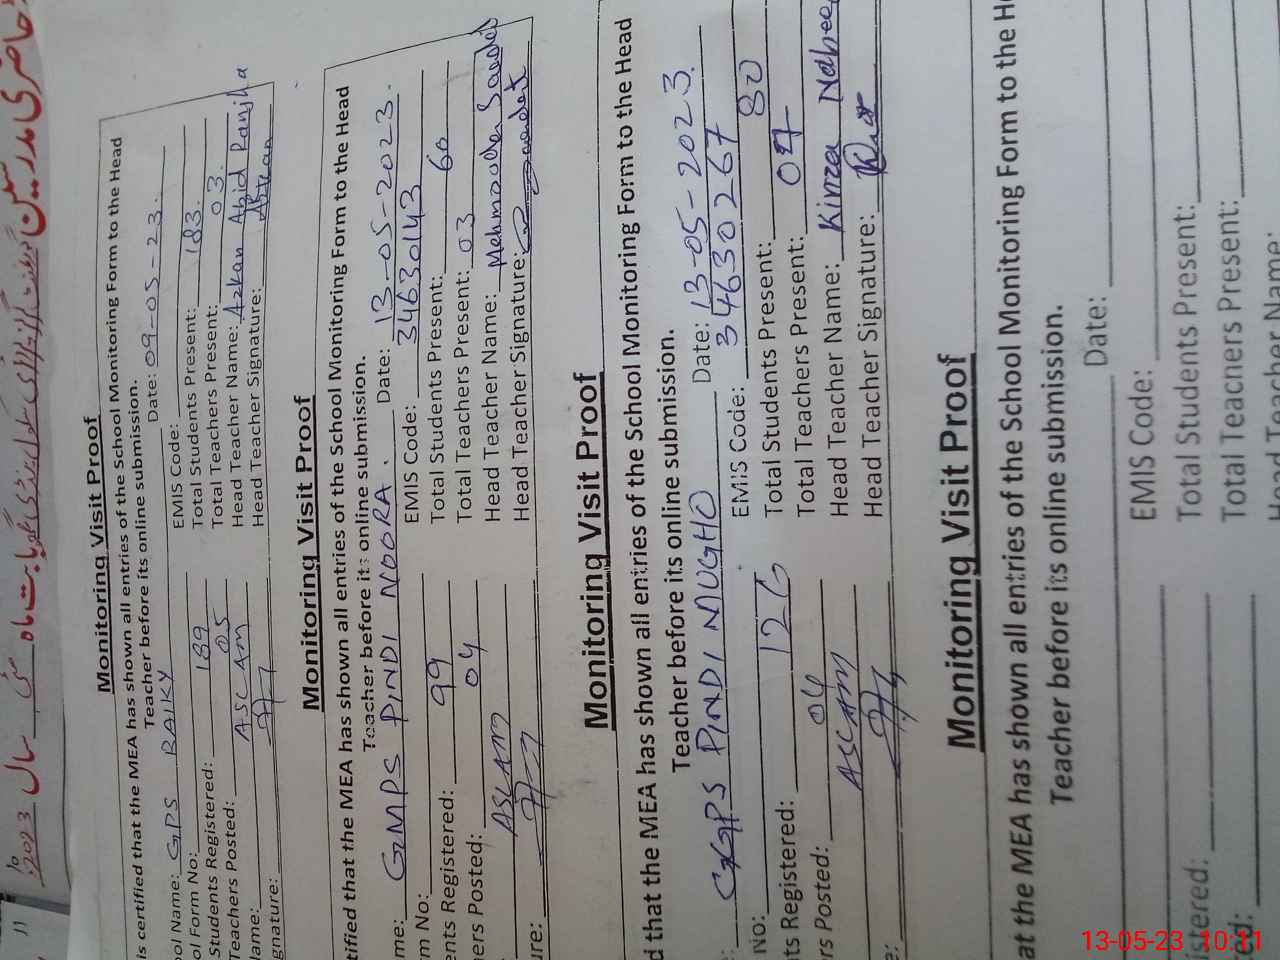 Monitoring Visit Proof
is certified that the MEA has shown all entries of the School Monitoring Form to the Head
Teacher before its online submission.
ool Name: GPS RAIKY Date: 09-05-23.
ol Form No: EMIS Code:
Students Registered: 189 Total Students Present: 183.
Teachers Posted: 05 Total Teachers Present: 03.
Name: ASLAM Head Teacher Name: Azkan Abid Ranjha
gnature: Head Teacher Signature:
Monitoring Visit Proof
tified that the MEA has shown all entries of the School Monitoring Form to the Head
Teacher before its online submission.
me: GMPS PINDI NOORA. Date: 13-05-2023.
m No: EMIS Code: 34630143
ents Registered: 99 Total Students Present: 60
ers Posted: 04 Total Teachers Present: 03
ASLAM Head Teacher Name: Mehmooda Saadat
ure: Head Teacher Signature: Saadat
Monitoring Visit Proof
d that the MEA has shown all entries of the School Monitoring Form to the Head
Teacher before its online submission.
: GGPS PINDI MUGHO Date: 13-05-2023.
No: EMIS Code: 34630267
ts Registered: 126 Total Students Present: 80
rs Posted: 04 Total Teachers Present: 04
ASLAM Head Teacher Name: Kinza Nabee
e: Head Teacher Signature:
Monitoring Visit Proof
at the MEA has shown all entries of the School Monitoring Form to the He
Teacher before its online submission.
Date:
EMIS Code:
istered: Total Students Present:
ted: Total Teachers Present:
Head Teacher Name:
13-05-23 10:11